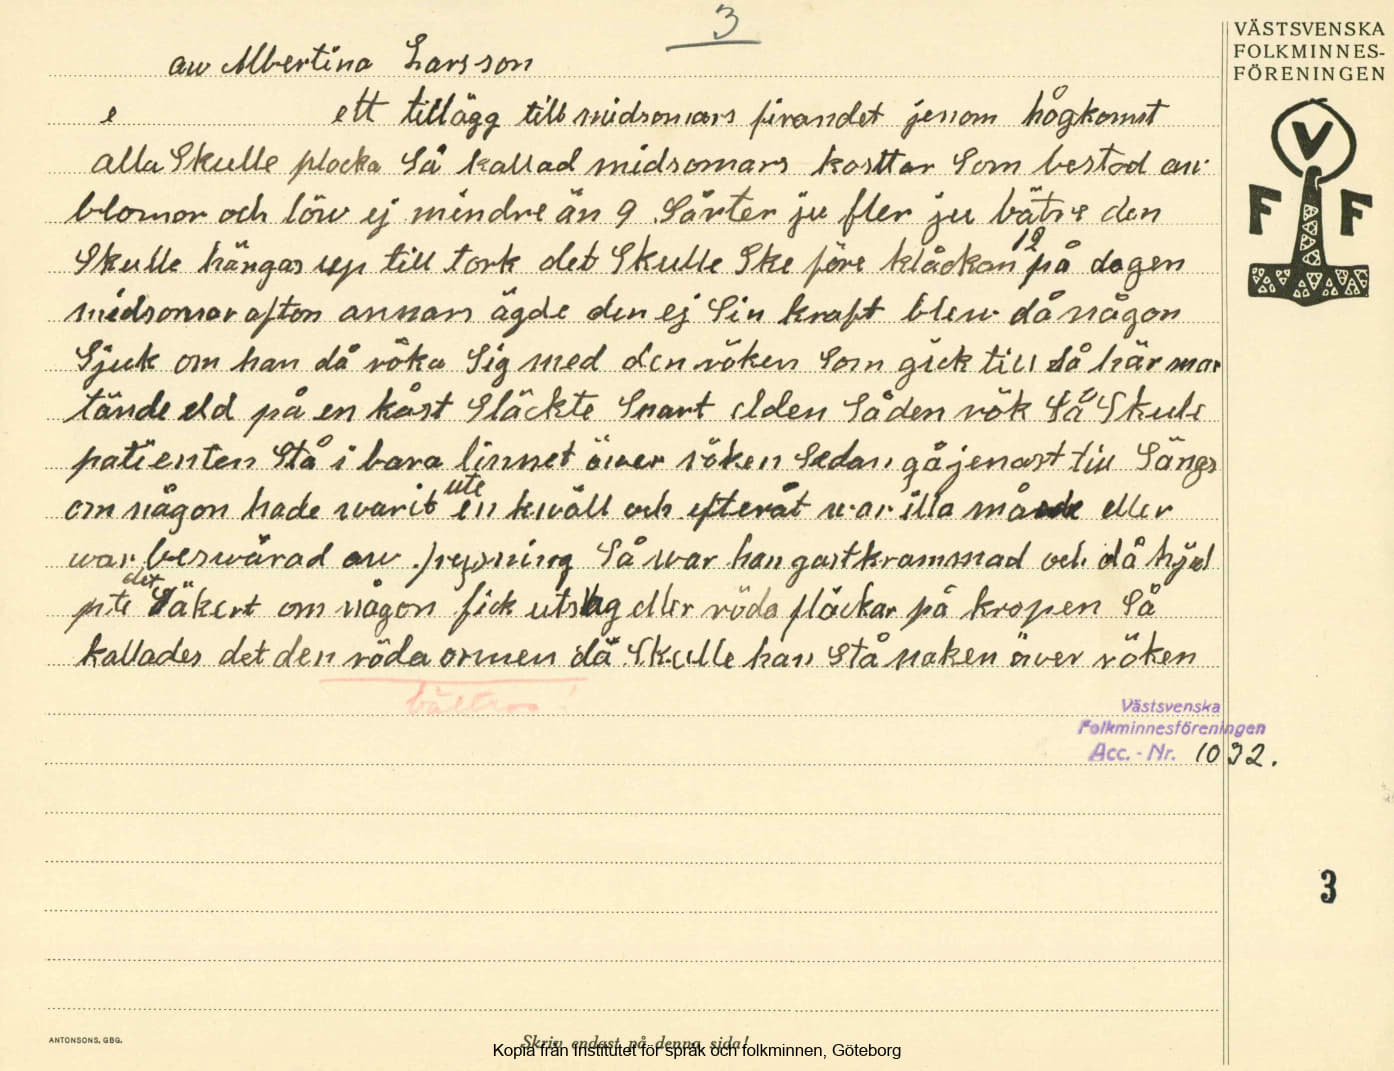 3
VÄSTSVENSKA
FOLKMINNES-
FÖRENINGEN
V
F F
aw Albertina Larsson
e ett tillägg till midsomars firandet jenom hågkomst
alla Skulle plocka Så kallad midsomars kosttar Som bestod aw
blomor och löw ej mindre än 9 Sårter ju fler ju bätre den
Skulle hängas up till tork det Skulle Ske före klåckan 12 på dagen
midsomar afton annars ägde den ej Sin kraft blew då någon
Sjuk om han då röka Sig med den röken Som gick till så här man
tände eld på en kåst Släckte Snart elden Såden rök Så Skule
patienten Stå i bara linnet öwer röken Sedan gå jenast till Sängs
om någon hade warit ute en kwäll och efteråt war illa månde eller
war beswärad aw frysning Så war han gastkrammad och då hjäl
pte det Säkert om någon fick utslag eller röda fläckar på kropen Så
kallades det den röda ormen då Skulle han Stå naken öwer röken
bältros!
Västsvenska
Folkminnesföreningen
Acc. - Nr. 1032.
3
ANTONSONS, GBG.
Skriv endast på denna sida!
Kopia från Institutet för språk och folkminnen, Göteborg